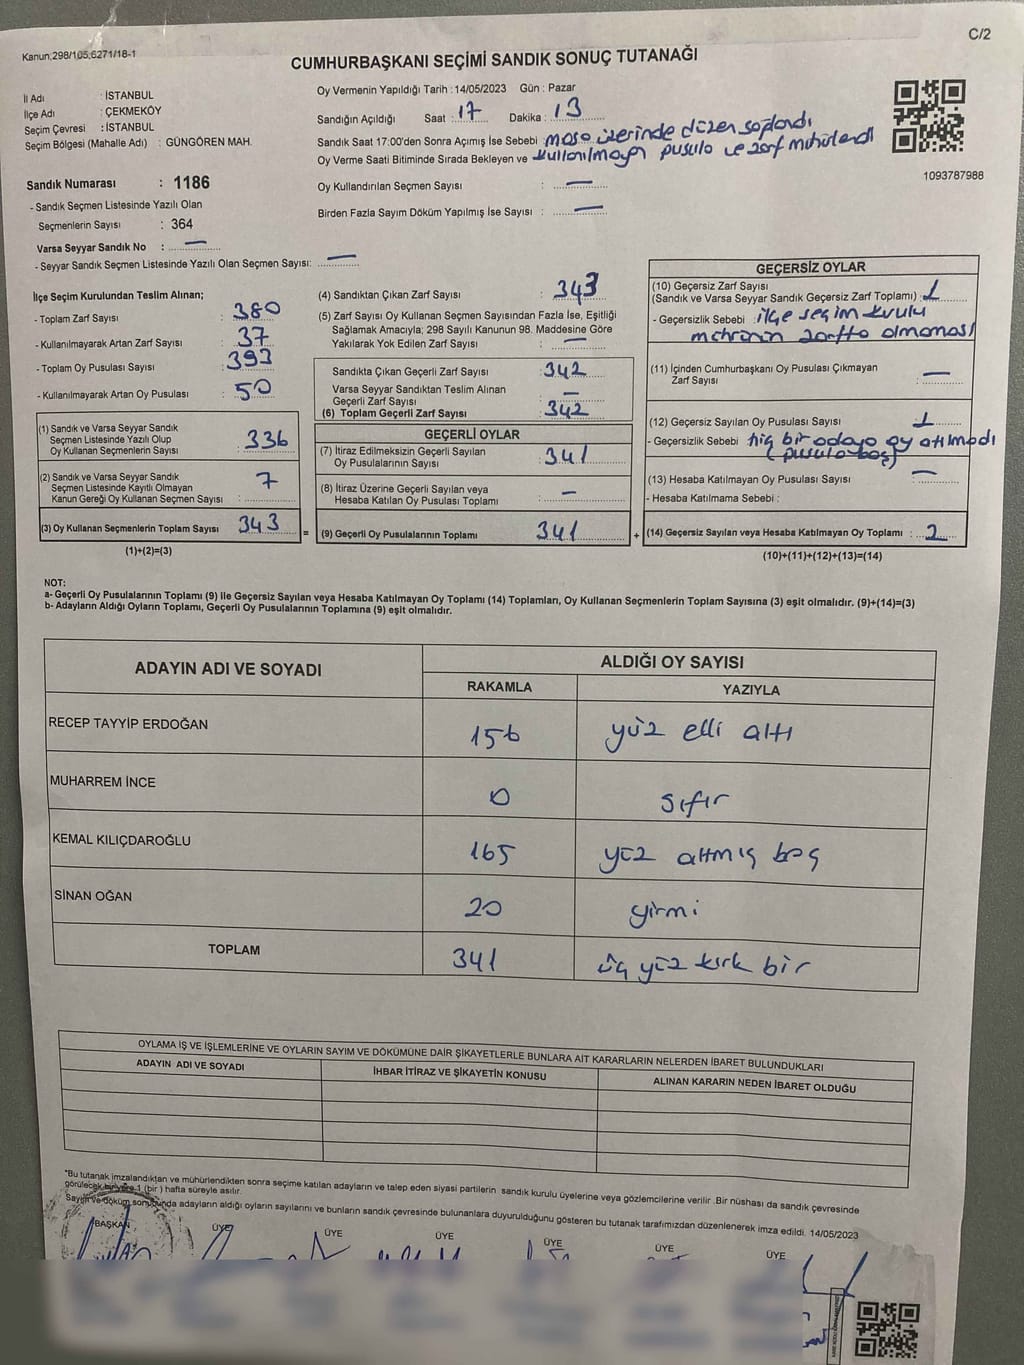 Kanun:298/105;6271/18-1
C/2
CUMHURBAŞKANI SEÇİMİ SANDIK SONUÇ TUTANAĞI
İl Adı : İSTANBUL
İlçe Adı : ÇEKMEKÖY
Seçim Çevresi : İSTANBUL
Seçim Bölgesi (Mahalle Adı) : GÜNGÖREN MAH.
Oy Vermenin Yapıldığı Tarih : 14/05/2023 Gün : Pazar
Sandığın Açıldığı Saat : 17 Dakika : 13
Sandık Saat 17:00'den Sonra Açımış İse Sebebi : masa üzerinde düzen sağlandı
Oy Verme Saati Bitiminde Sırada Bekleyen ve kullanılmayan pusula ve zarf mühürlendi
Oy Kullandırılan Seçmen Sayısı : —
Birden Fazla Sayım Döküm Yapılmış İse Sayısı : —
1093787988
Sandık Numarası : 1186
- Sandık Seçmen Listesinde Yazılı Olan
Seçmenlerin Sayısı : 364
Varsa Seyyar Sandık No : —
- Seyyar Sandık Seçmen Listesinde Yazılı Olan Seçmen Sayısı: —
İlçe Seçim Kurulundan Teslim Alınan;
- Toplam Zarf Sayısı : 380
- Kullanılmayarak Artan Zarf Sayısı : 37
- Toplam Oy Pusulası Sayısı : 393
- Kullanılmayarak Artan Oy Pusulası : 50
(1) Sandık ve Varsa Seyyar Sandık
Seçmen Listesinde Yazılı Olup
Oy Kullanan Seçmenlerin Sayısı : 336
(2) Sandık ve Varsa Seyyar Sandık
Seçmen Listesinde Kayıtlı Olmayan
Kanun Gereği Oy Kullanan Seçmen Sayısı : 7
(3) Oy Kullanan Seçmenlerin Toplam Sayısı : 343
(1)+(2)=(3)
=
(4) Sandıktan Çıkan Zarf Sayısı : 343
(5) Zarf Sayısı Oy Kullanan Seçmen Sayısından Fazla İse, Eşitliği
Sağlamak Amacıyla; 298 Sayılı Kanunun 98. Maddesine Göre
Yakılarak Yok Edilen Zarf Sayısı : —
Sandıkta Çıkan Geçerli Zarf Sayısı : 342
Varsa Seyyar Sandıktan Teslim Alınan
Geçerli Zarf Sayısı : —
(6) Toplam Geçerli Zarf Sayısı : 342
GEÇERLİ OYLAR
(7) İtiraz Edilmeksizin Geçerli Sayılan
Oy Pusulalarının Sayısı : 341
(8) İtiraz Üzerine Geçerli Sayılan veya
Hesaba Katılan Oy Pusulası Toplamı : —
(9) Geçerli Oy Pusulalarının Toplamı : 341
+
GEÇERSİZ OYLAR
(10) Geçersiz Zarf Sayısı
(Sandık ve Varsa Seyyar Sandık Geçersiz Zarf Toplamı) : 1
- Geçersizlik Sebebi : ilçe seçim kurulu
mührünün zarfta olmaması
(11) İçinden Cumhurbaşkanı Oy Pusulası Çıkmayan
Zarf Sayısı : —
(12) Geçersiz Sayılan Oy Pusulası Sayısı : 1
- Geçersizlik Sebebi hiç bir adaya oy atılmadı
(pusula boş)
(13) Hesaba Katılmayan Oy Pusulası Sayısı : —
- Hesaba Katılmama Sebebi :
(14) Geçersiz Sayılan veya Hesaba Katılmayan Oy Toplamı : 2
(10)+(11)+(12)+(13)=(14)
NOT:
a- Geçerli Oy Pusulalarının Toplamı (9) ile Geçersiz Sayılan veya Hesaba Katılmayan Oy Toplamı (14) Toplamları, Oy Kullanan Seçmenlerin Toplam Sayısına (3) eşit olmalıdır. (9)+(14)=(3)
b- Adayların Aldığı Oyların Toplamı, Geçerli Oy Pusulalarının Toplamına (9) eşit olmalıdır.
ADAYIN ADI VE SOYADI
ALDIĞI OY SAYISI
RAKAMLA YAZIYLA
RECEP TAYYİP ERDOĞAN 156 yüz elli altı
MUHARREM İNCE 0 sıfır
KEMAL KILIÇDAROĞLU 165 yüz altmış beş
SİNAN OĞAN 20 yirmi
TOPLAM 341 üç yüz kırk bir
OYLAMA İŞ VE İŞLEMLERİNE VE OYLARIN SAYIM VE DÖKÜMÜNE DAİR ŞİKAYETLERLE BUNLARA AİT KARARLARIN NELERDEN İBARET BULUNDUKLARI
ADAYIN ADI VE SOYADI İHBAR İTİRAZ VE ŞİKAYETİN KONUSU ALINAN KARARIN NEDEN İBARET OLDUĞU
"Bu tutanak imzalandıktan ve mühürlendikten sonra seçime katılan adayların ve talep eden siyasi partilerin sandık kurulu üyelerine veya gözlemcilerine verilir .Bir nüshası da sandık çevresinde
görülecek bir yere 1 (bir ) hafta süreyle asılır.
Sayım ve döküm sonucunda adayların aldığı oyların sayılarını ve bunların sandık çevresinde bulunanlara duyurulduğunu gösteren bu tutanak tarafımızdan düzenlenerek imza edildi. 14/05/2023
BAŞKAN ÜYE ÜYE ÜYE ÜYE ÜYE ÜYE